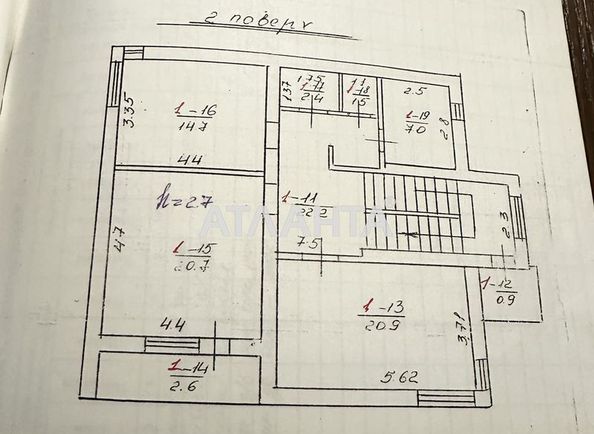 2 поверх
1.75
1-17
2.4
1.37
1.1
1-18
1.5
2.5
1-19
7.0
2.8
3.35
1-16
14.7
4.4
h=2.7
1-11
22.2
7.5
2.3
АТЛАНТА
4.7
1-15
20.7
4.4
1-12
0.9
1-13
20.9
3.71
5.62
1-14
2.6